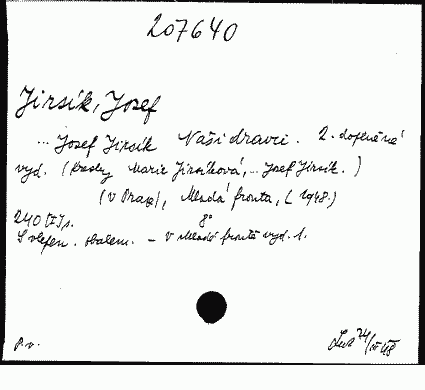 207640
Jirsík, Josef
... Josef Jirsík Naši dravci. 2. doplněné
vyd. (Kresby Marie Jirsíková, ... Josef Jirsík.)
(V Praze), Mladá fronta, (1948.)
240 s.
8°
S vlepen. obálem. - V Mladé frontě vyd. 1.
P.v.